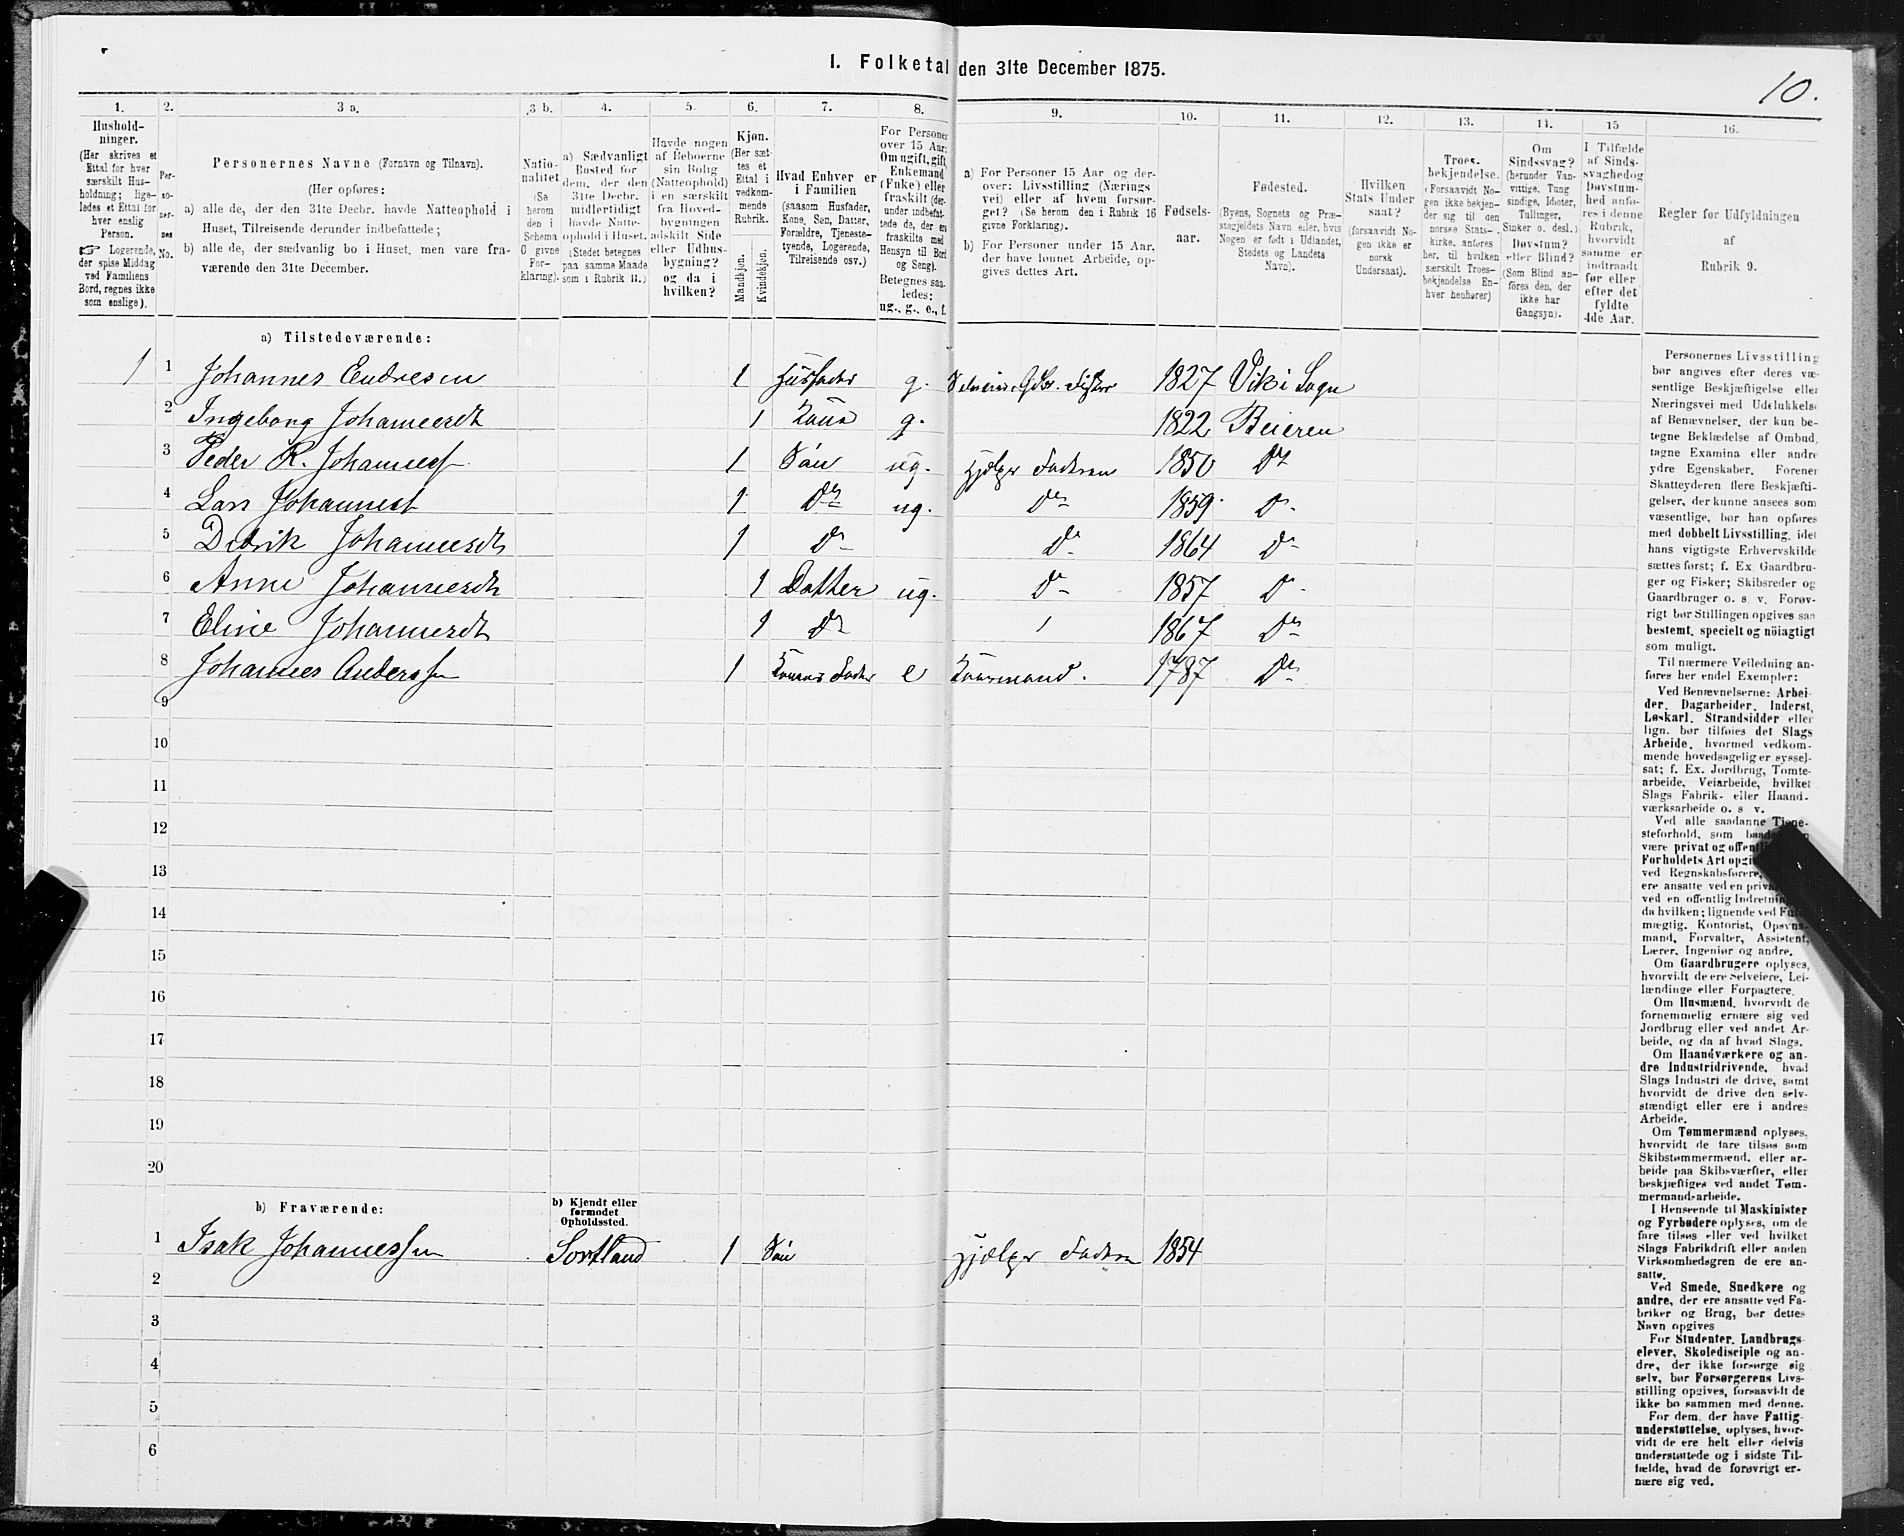 I. Folketal den 31te December 1875.
10.
1. 2. 3 a. 3 b. 4. 5. 6. 7. 8. 9. 10. 11. 12. 13. 14. 15 16.
Hushold-
ninger.
(Her skrives et
Ettal for hver
særskilt Hus-
holdning; lige-
ledes et Ettal for
hver enslig
Person.
☞ Logerende,
der spise Middag
ved Familiens
Bord, regnes ikke
som enslige).
Per-
so-
ner-
nes
No.
Personernes Navne (Fornavn og Tilnavn).
(Her opføres:
a) alle de, der den 31te Decbr. havde Natteophold i
Huset, Tilreisende derunder indbefattede;
b) alle de, der sædvanlig bo i Huset, men vare fra-
værende den 31te December.
Natio-
nalitet
(Se
herom
den i
Schema
O givne
For-
klaring).
a) Sædvanligt
Bosted for
dem, der den
31te Decbr.
midlertidigt
havde Natte-
ophold i Huset.
(Stedet betegnes
paa samme Maade
som i Rubrik 11.)
Havde nogen
af Beboerne
sin Bolig
(Natteophold)
i en særskilt
fra Hoved-
bygningen
adskilt Side
eller Udhus-
bygning?
og da i
hvilken?
Kjøn.
(Her sæt-
tes et
Ettal i
vedkom-
mende
Rubrik.
Mandkjøn.
Kvindekjøn.
Hvad Enhver er
i Familien
(saasom Husfader,
Kone, Søn, Datter,
Forældre, Tjeneste-
tyende, Logerende,
Tilreisende osv.)
For Personer
over 15 Aar:
Om ugift, gift,
Enkemand
(Enke) eller
fraskilt (der-
under indbefat-
tede de, der ere
fraskilte med
Hensyn til Bord
og Seng).
Betegnes saa-
ledes:
ug., g., e., f.
a) For Personer 15 Aar og der-
over: Livsstilling (Nærings-
vei) eller af hvem forsør-
get? (Se herom den i Rubrik 16
givne Forklaring).
b) For Personer under 15 Aar,
der have lønnet Arbeide, op-
gives dettes Art.
Fødsels-
aar.
Fødested.
(Byens, Sognets og Præ-
stegjeldets Navn eller, hvis
Nogen er født i Udlandet,
Stedets og Landets
Navn).
Hvilken
Stats Under
saat?
(forsaavidt No-
gen ikke er
norsk
Undersaat).
Troes-
bekjendelse.
(Forsaavidt No-
gen ikke bekjen-
der sig til den
norske Stats-
kirke, anføres
her, til hvilken
særskilt Troes-
bekjendelse En-
hver henhører)
Om
Sindssvag?
(herunder Van-
vittige, Tung
sindige, Idioter,
Tullinger,
Sinker o. desl.)
Døvstum?
eller Blind?
(Som Blind an-
føres den, der
ikke har
Gangsyn).
I Tilfælde
af Sinds-
svaghed og
Døvstum-
hed anfø-
res i denne
Rubrik,
hvorvidt
samme er
indtraadt
før eller
efter det
fyldte
4de Aar.
Regler for Udfyldningen
af
Rubrik 9.
a) Tilstedeværende:
1 1 Johannes Endresen 1 Husfader g. 1827 Vik i Sogn
2 Ingeborg Johannesdt 1 Kone g. 1822 Beieren
3 Peder R. Johannes 1 Søn ug. Hjelper Faderen 1850 Do
4 Lars Johannes 1 Do ug. Do 1859 Do
5 Didrik Johannesdt 1 Do Do 1864 Do
6 Anne Johannesdt 1 Datter ug. Do 1857 Do
7 Eline Johannesdt 1 Do 1867 Do
8 Johannes Anderssen 1 Konens Fader e Kaarmand. 1787 Do
9
10
11
12
13
14
15
16
17
18
19
20
b) Fraværende:
b) Kjendt eller
formodet
Opholdssted.
1 Isak Johannessen Sortland 1 Søn Hjælper Faderen 1854
2
3
4
5
6
Personernes Livsstilling
bør angives efter deres væ-
sentlige Beskjæftigelse eller
Næringsvei med Udelukkelse
af Benævnelser, der kun be-
tegne Beklædelse af Ombud,
tagne Examina eller andre
ydre Egenskaber. Forener
Skatteyderen flere Beskjæfti-
gelser, der kunne ansees som
væsentlige, bør han opføres
med dobbelt Livsstilling, idet
hans vigtigste Erhvervskilde
sættes først; f. Ex. Gaardbru-
ger og Fisker; Skibsreder og
Gaardbruger o. s. v. Forøv-
rigt bør Stillingen opgives saa
bestemt, specielt og nöiagtigt
som muligt.
Til nærmere Veiledning an-
føres her endel Exempler:
Ved Benævnelserne: Arbei-
der, Dagarbeider, Inderst,
Løskarl, Strandsidder eller
lign. bør tilføies det Slags
Arbeide, hvormed vedkom-
mende hovedsagelig er syssel-
sat; f. Ex. Jordbrug, Tomte-
arbeide, Veiarbeide, hvilket
Slags Fabrik- eller Haand-
værksarbeide o. s v.
Ved alle saadanne Tjene-
steforhold, som
være privat og
Forholdets Art
ved Regnskabsførere,
ere ansatte ved en
ved en offentlig
da hvilken; lignende ved
mægtig, Kontorist, Opsyns-
mand, Forvalter, Assistent,
Lærer, Ingeniør og andre.
Om Gaardbrugere oplyses,
hvorvidt de ere Selveiere, Lei-
lændinge eller Forpagtere.
Om Husmænd, hvorvidt de
fornemmelig ernære sig ved
Jordbrug eller ved andet Ar-
beide, og da af hvad Slags.
Om Haandværkere og an-
dre Industridrivende, hvad
Slags Industri de drive, samt
hvorvidt de drive den selv-
stændigt eller ere i andres
Arbeide.
Om Tømmermænd oplyses,
hvorvidt de fare tilsøs som
Skibstømmermænd, eller ar-
beide paa Skibsværfter, eller
beskjæftiges ved andet Tøm-
mermandsarbeide.
I Henseende til Maskinister
og Fyrbødere oplyses, om de
fare tilsøs eller ved hvilket
Slags Fabrikdrift eller anden
Virksomhedsgren de ere an-
satte.
Ved Smede, Snedkere og
andre, der ere ansatte ved Fa-
briker og Brug, bør dettes
Navn opgives
For Studenter, Landbrugs-
elever, Skoledisciple og an-
dre, der ikke forsørge sig
selv, bør Forsørgerens Livs-
stilling opgives, forsaavidt de
ikke bo sammen med denne.
For dem, der have Fattig-
understøttelse, oplyses, hvor-
vidt de ere helt eller delvis
understøttede og i sidste Til-
fælde, hvad de forøvrigt er-
nære sig ved.